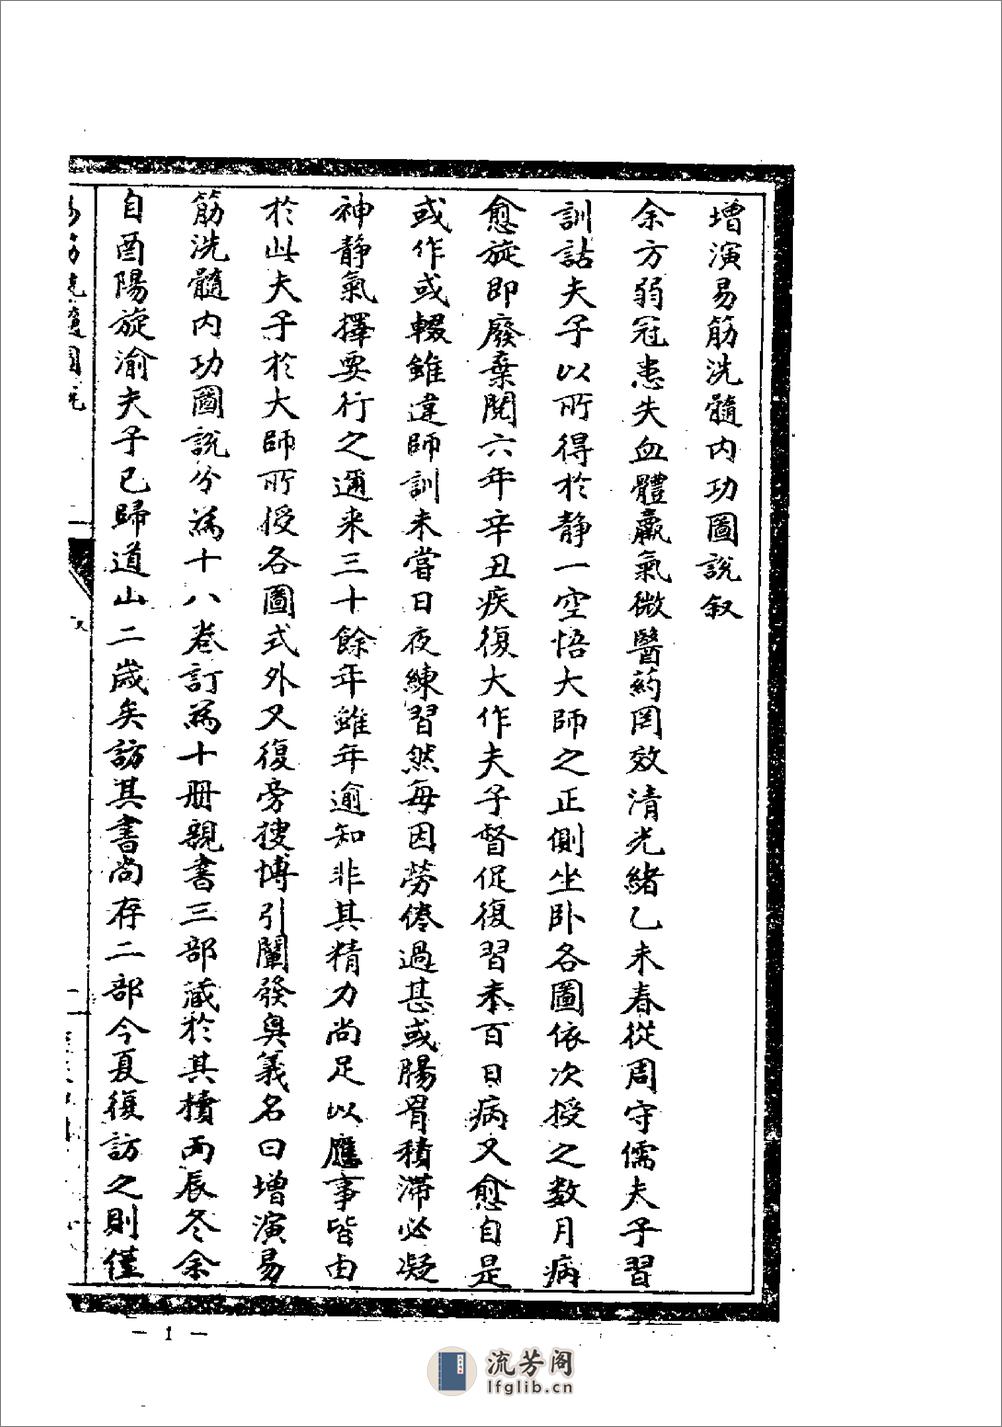 增演易筋洗髓內功圖說叙
余方弱冠患失血體羸氣微醫葯罔效清光緒乙未春從周守儒夫子習
訓詁夫子以所得於静一空悟大師之正側坐卧各圖依次授之数月病
愈旋即廢棄閱六年辛丑疾復大作夫子督促復習未百日病又愈自是
或作或輟雖違師訓未嘗日夜練習然每因勞倦過甚或腸胃積滯必凝
神静氣擇要行之邇来三十餘年雖年逾知非其精力尚足以應事皆由
於此夫子於大師所授各圖式外又復旁搜博引闡發奥義名曰增演易
筋洗髓内功圖說分為十八卷訂為十册親書三部藏於其櫝丙辰冬余
自酉陽旋渝夫子已歸道山二歲矣訪其書尚存二部今夏復訪之則僅
— 1 —
流芳阁
lfglib.cn